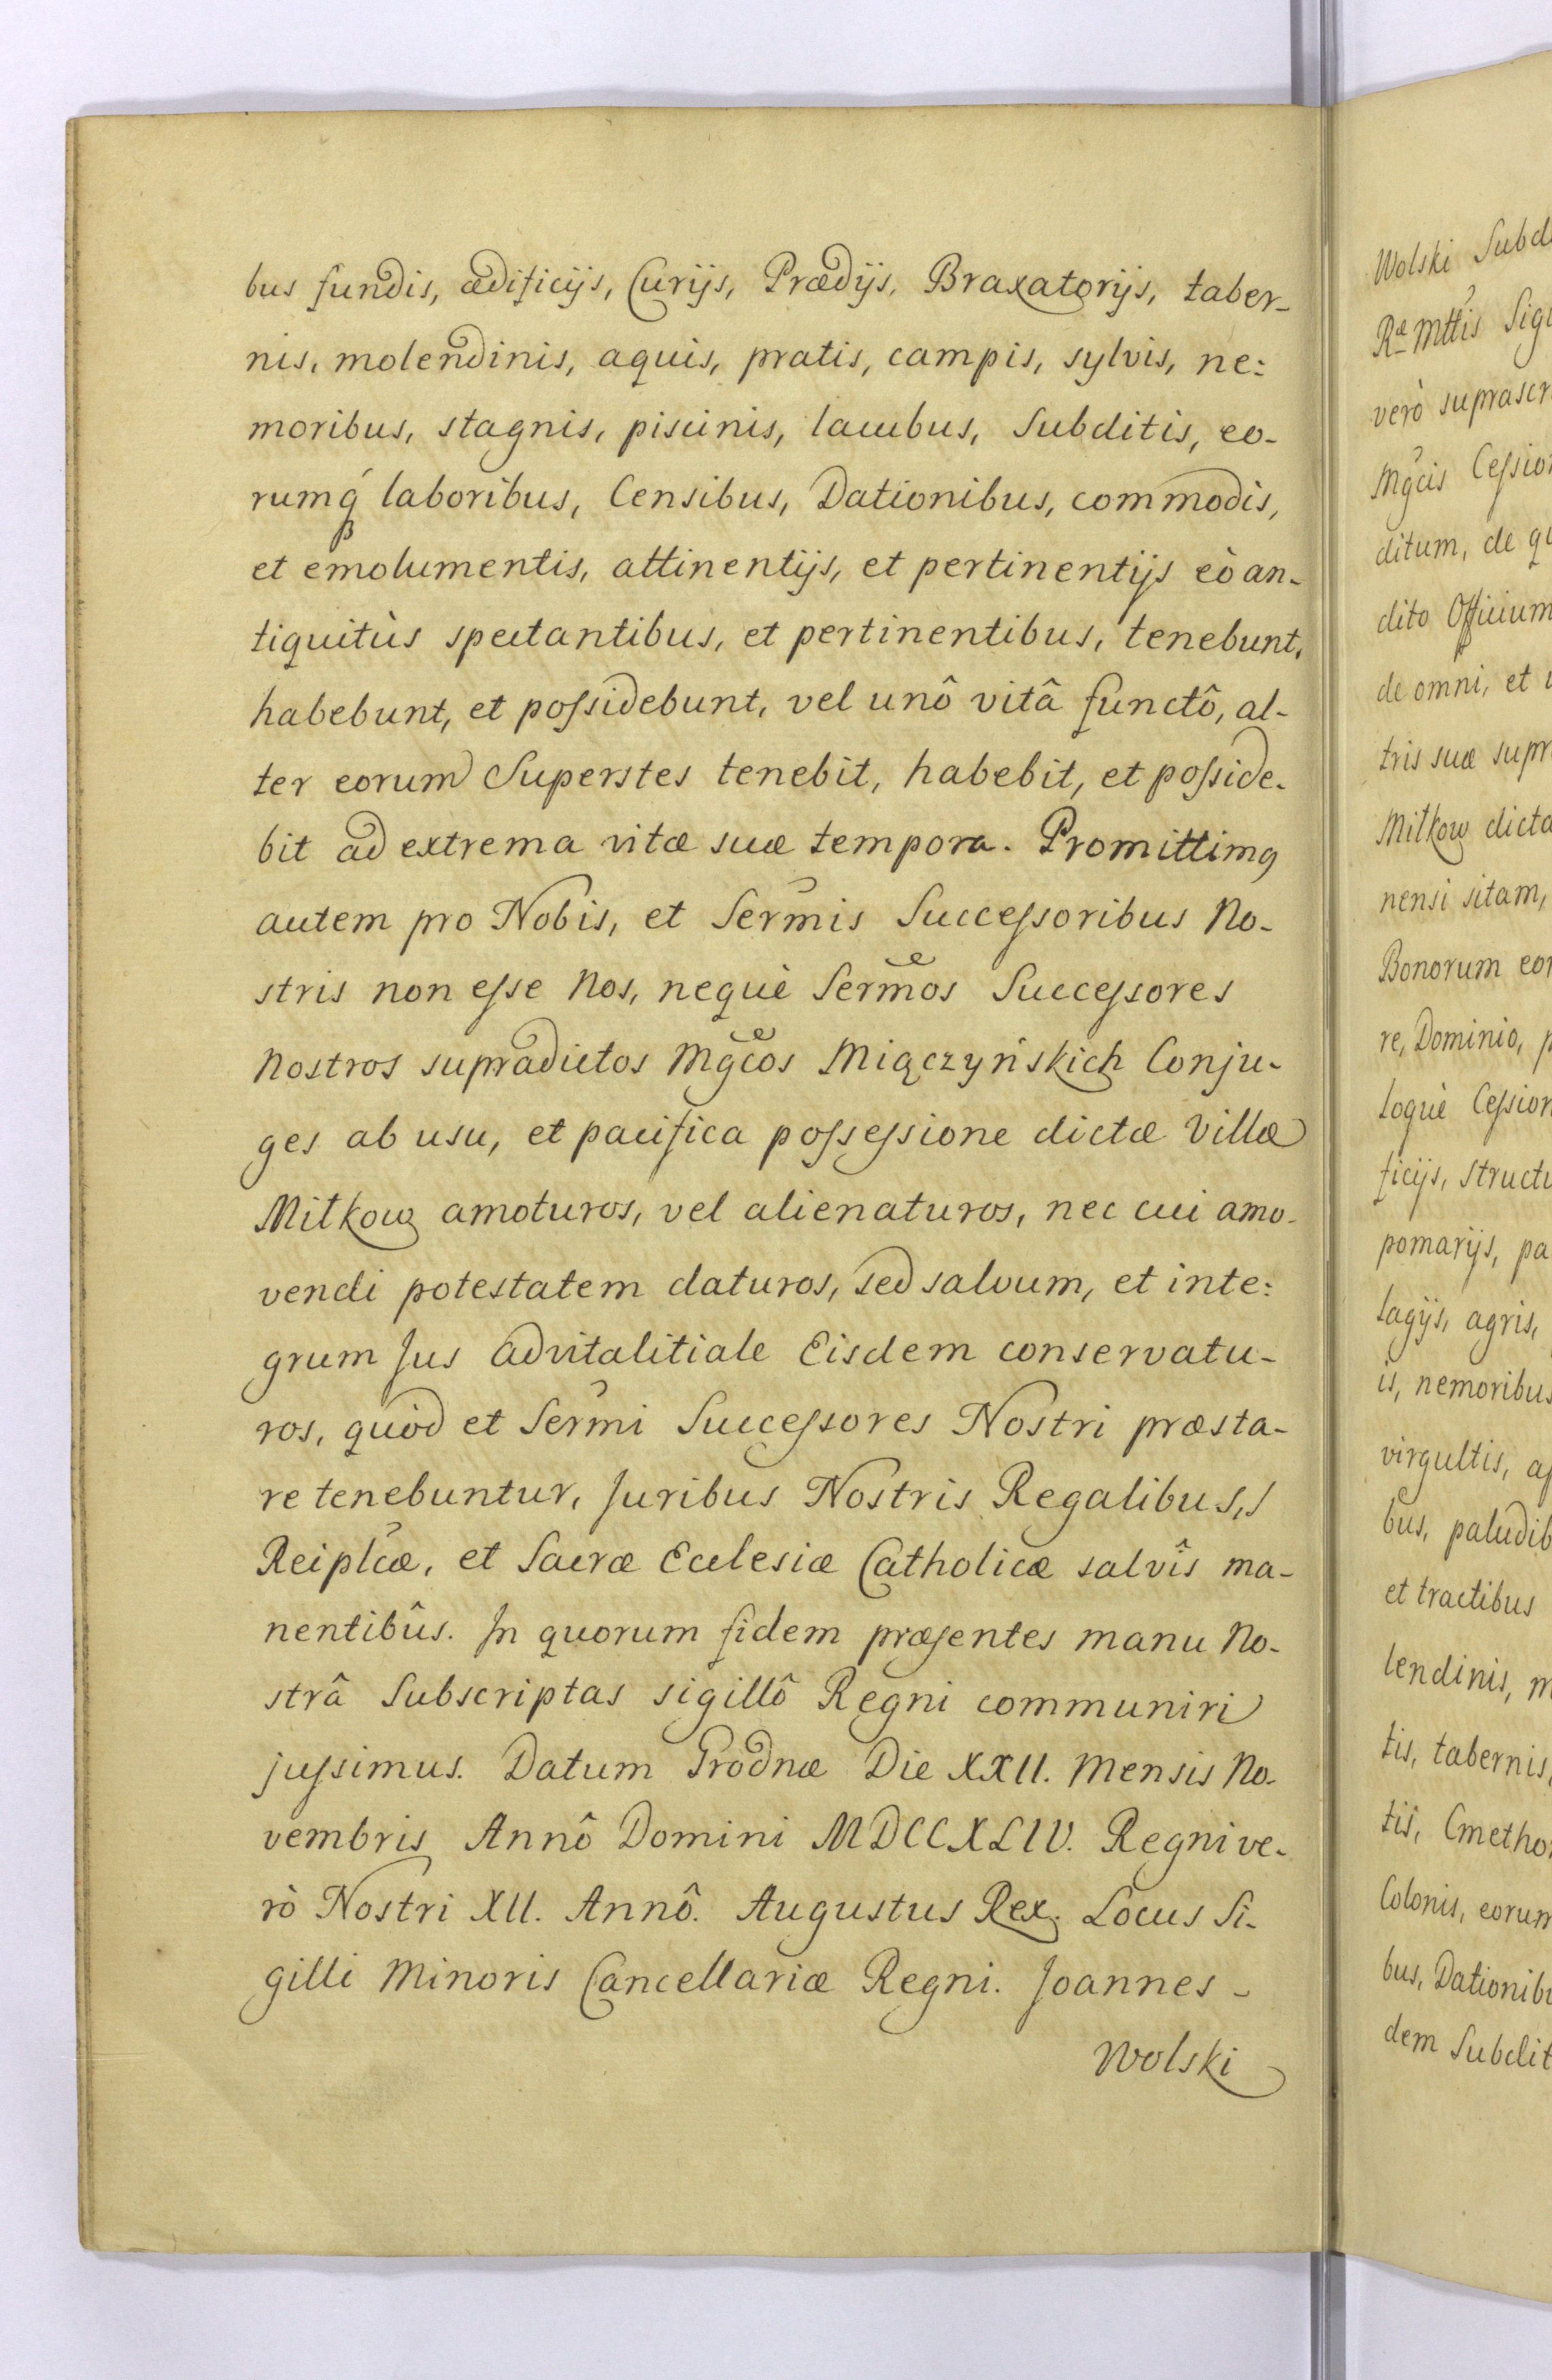 bus fundis, ædificijs, Curijs, Prædijs, Braxatorijs, taber-
nis, molendinis, aquis, pratis, campis, sylvis, ne:
moribus, stagnis, piscinis, lacubus, Subditis, eo-
rumq́ laboribus, Censibus, Dationibus, commodis,
et emolumentis, attinentijs, et pertinentijs eò an-
tiquitùs spectantibus, et pertinentibus, tenebunt,
habebunt, et poſsidebunt, vel unô vitâ functô, al-
ter eorum Superstes tenebit, habebit, et poſside-
bit ad extrema vitæ suæ tempora. Promittimq
autem pro Nobis, et Sermis Succeſsoribus No-
stris non eſse Nos, nequè Sermos Succeſsores
Nostros supradictos Mgcos Miączyńskich Conju-
ges ab usu, et pacifica poſseſsione dictæ Villæ
Mitkow amoturos, vel alienaturos, nec cui amo-
vendi potestatem daturos, sed salvum, et inte:
grum Jus advitalitiale Eisdem conservatu-
ros, quòd et Sermi Succeſsores Nostri præsta-
re tenebuntur, Juribus Nostris Regalibus,
Reiplcæ, et Sacræ Ecclesiæ Catholicæ salvîs ma-
nentibûs. In quorum fidem præſentes manu No-
strâ Subscriptas sigillô Regni communiri
juſsimus. Datum Grodnæ Die XXII. Mensis No-
vembris Annô Domini MDCCXLIV. Regni ve-
rò Nostri XII. Annô. Augustus Rex. Locus Si-
gilli Minoris Cancellariæ Regni. Joannes -
Wolski
Wolski
Ræ Mttis
verò
Mgcis
ditum, de
dito Officium
de omni, et
tris suæ
Mitkow
nensi sitam,
Bonorum
re, Dominio,
loquè
ficijs,
pomarijs,
agris,
is,
virgultis,
bus,
et tractibus
lendinis,
tis, tabernis,
tis,
Colonis,
bus,
dem